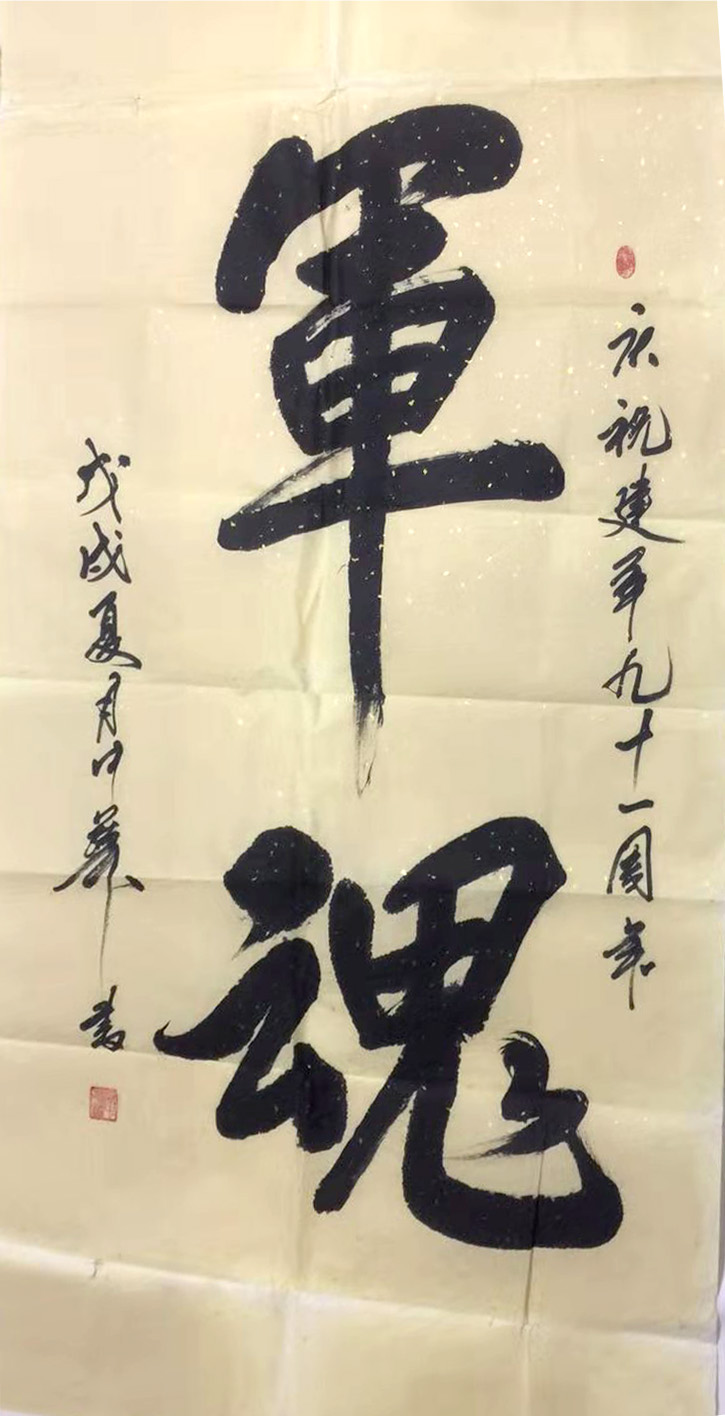 庆祝建军九十一周年
軍魂
戊戌夏月中華書